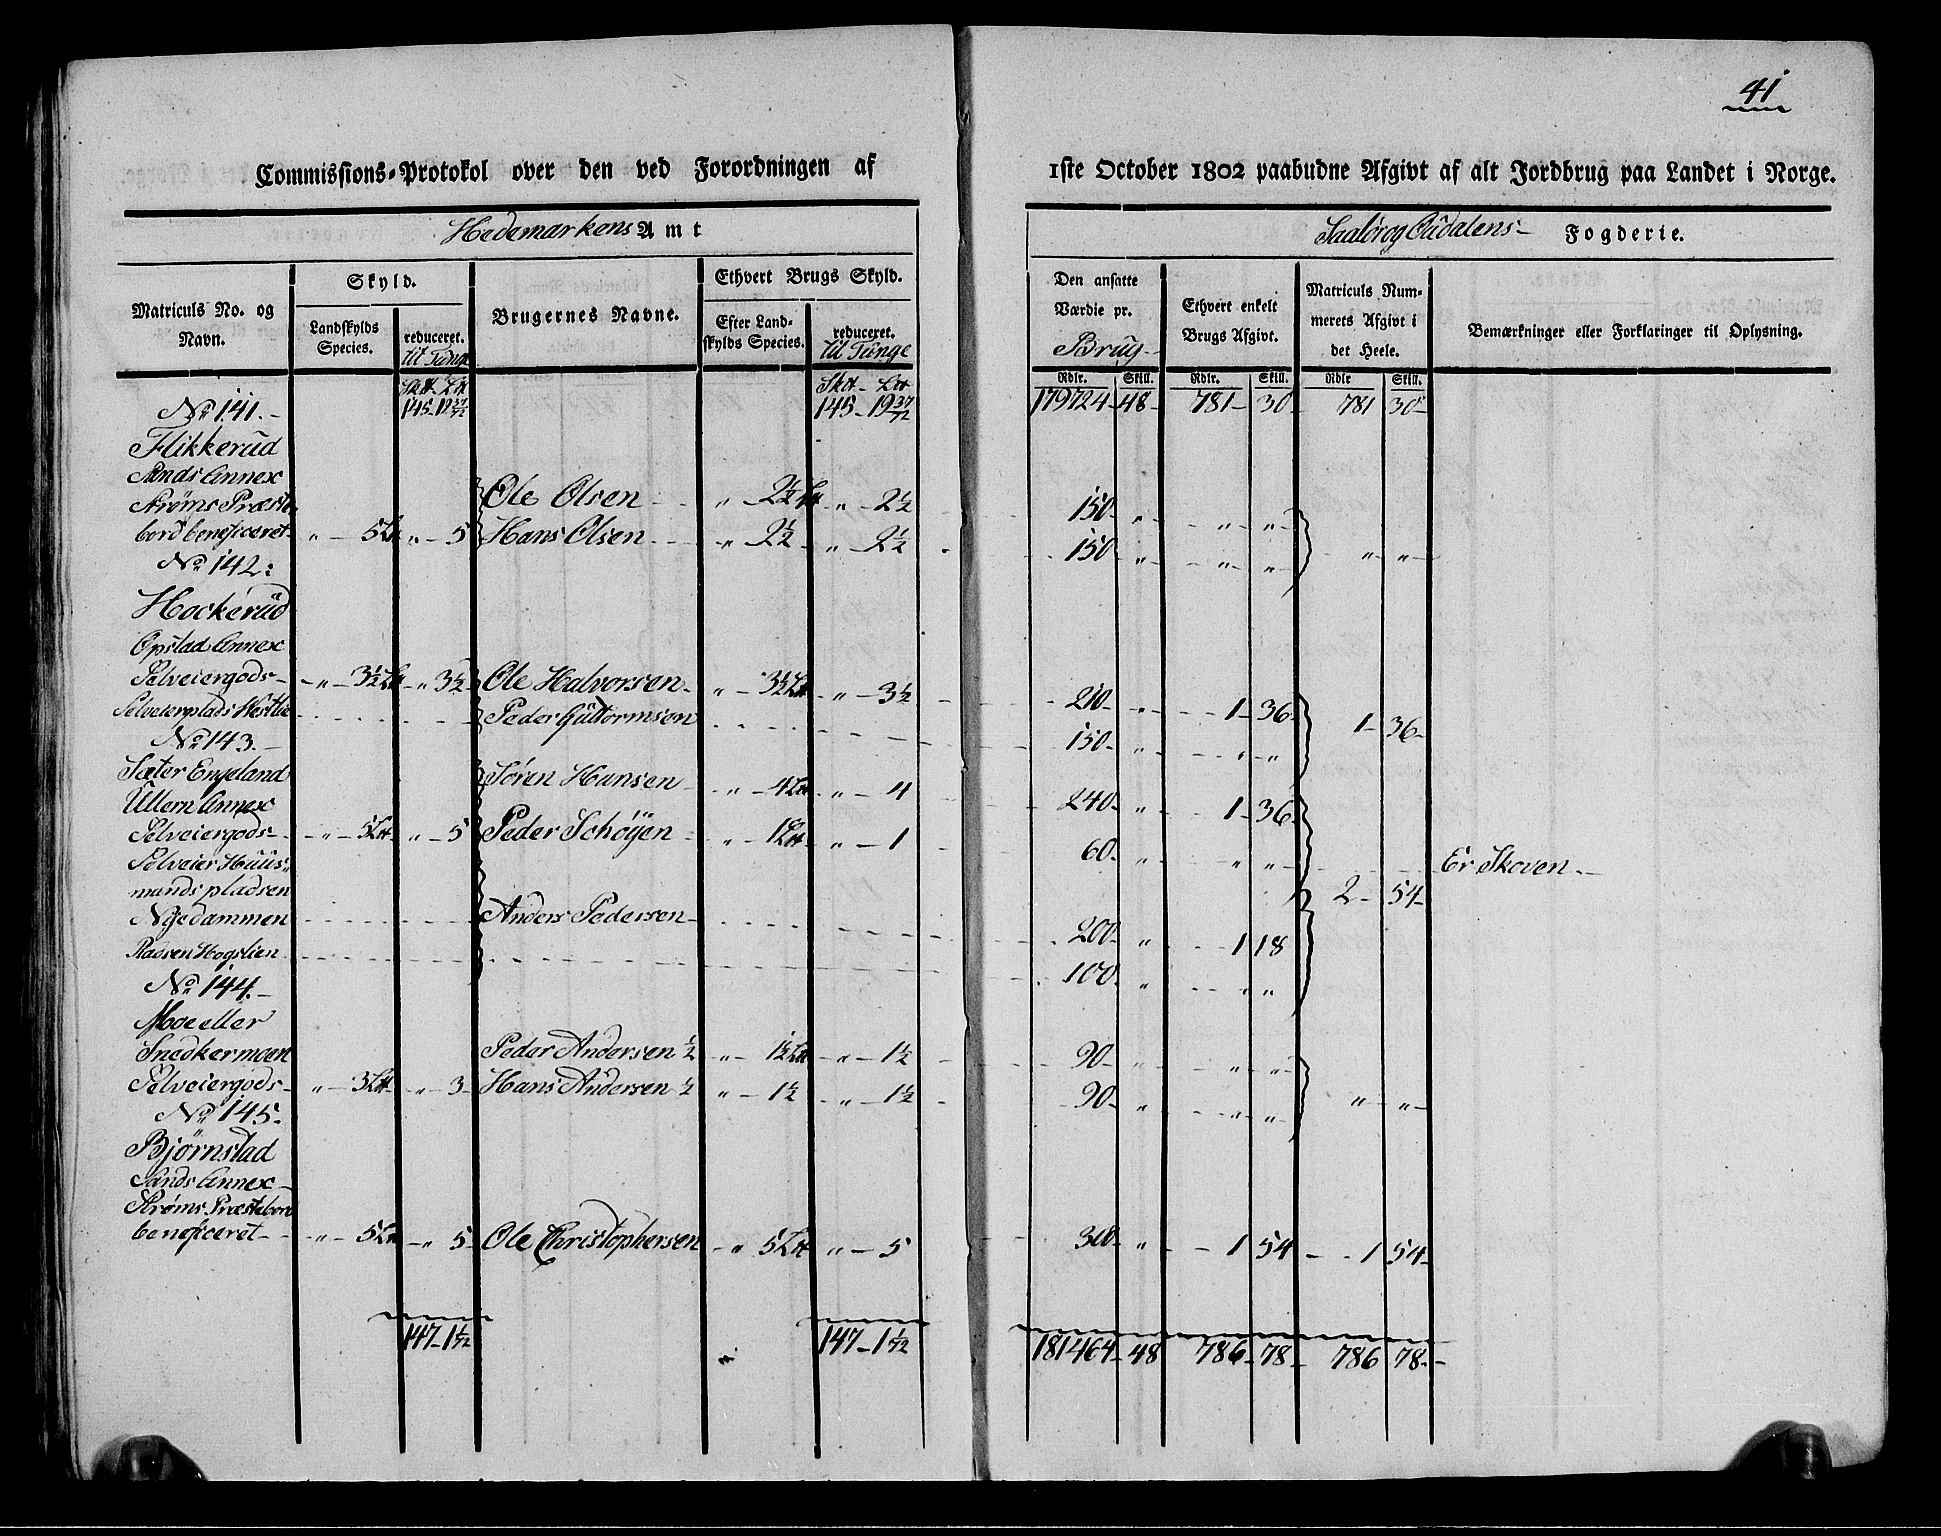 41
Commissions-Protokol over den ved Forordningen af 1ste October 1802 paabudne Afgivt af alt Jordbrug paa Landet i Norge.
Hedemarkens Amt
Saalør og Oudalens Fogderie.
Matriculs No. og Navn.
Skyld.
Landskylds Species.
reduceret. til Tunge
Brugernes Navne.
Ethvert Brugs Skyld.
Efter Landskylds Species.
reduceret. til Tunge
Den ansatte Værdie pr. Brug
Ethvert enkelt Brugs Afgivt.
Matriculs Nummerets Afgivt i det Heele.
Bemærkninger eller Forklaringer til Oplysning.
Rdlr. Skill. Rdlr. Skill. Rdlr Skill.
No 141. 145-19 37/72 145-19 37/72 179724-48- 781-30- 781 30-
Flikkerud
Sands Annex
Strøms Præste- Ole Olsen " 2½ " 2½ 150- " " "
bord beneficeret " 5 " 5 Hans Olsen " 2½ " 2½ 150 " " " " "
No 142:
Hockerud
Opstad Annex
Selveiergods " 3½ " 3½ Ole Halvorsen " 3½ " 3½ 210- " 1 36 1 36
Selveierplads Westlie Peder Guttormsen 150- " " "
No 143.
Sæter Engeland Søren Hansen " 4 " 4 240- " 1 36
Ullern Annex
Selveiergods " 5 " 5 Peder Schøyen " 1 " 1 60- " " " Er Skoven
Selveier Huus-
mandspladsen 2 54
Nyedammen Anders Pedersen 200 " 1 18
Pladsen Hogslien 100 " " "
No 144.
Moe eller
Snedkermoen Peder Andersen ½ " 1½ " 1½ 90- " " "
Selveiergods " 3 " 3 Hans Andersen ½ " 1½ " 1½ 90- " " " " "
No 145.
Bjørnstad
Sands Annex
Strøms Præstebord
beneficeret " 5 " 5 Ole Christophersen " 5 " 5 300 " 1 54 1 54
147-1 1/72 147-1 1/72 181464-48 786-78- 786 78-